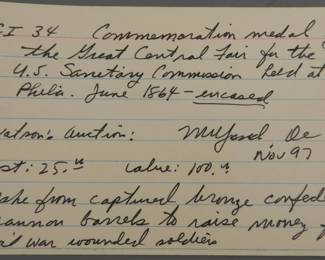 I 34 Commemoration medal
the Great Central Fair for the
U.S. Sanetary Commission held at
Phila. June 1864 - encased
atson's Auction: Milford De
Nov 97
st: 25.00 Value: 100.00
ake from captured bronze confed
cannon barrels to raise money
war wounded soldiers